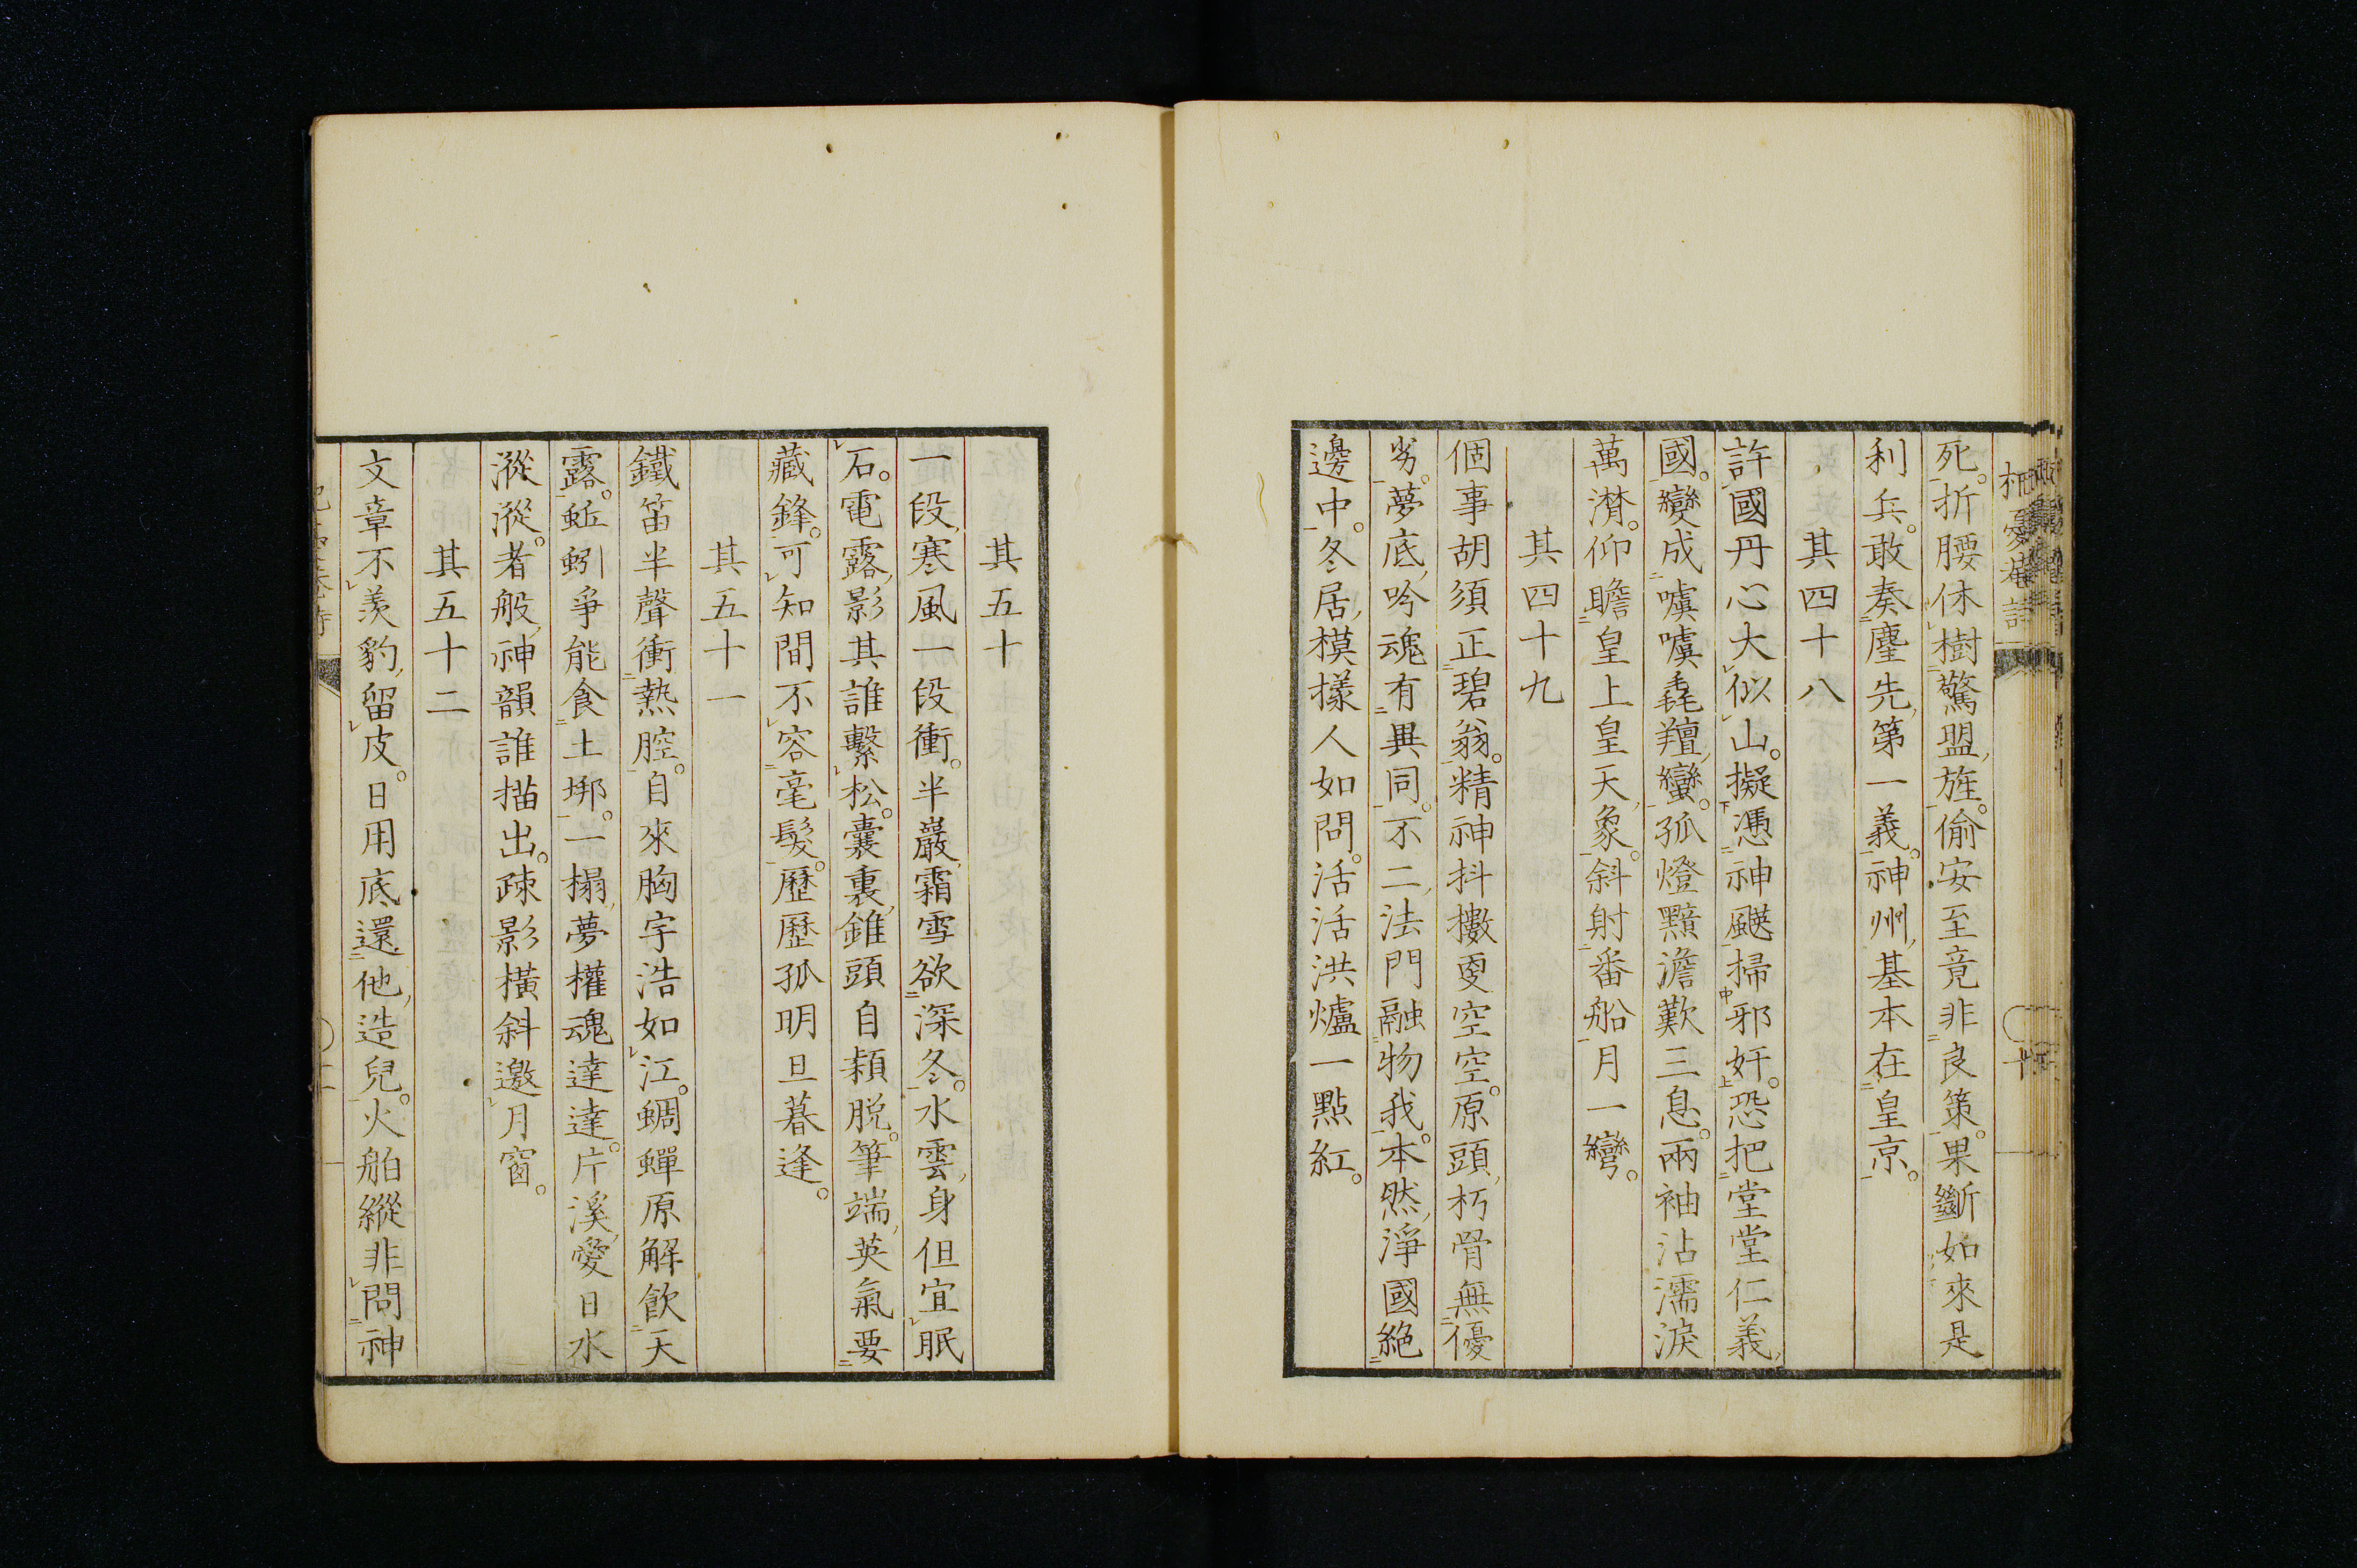 死。折腰休樹驚盟旌。偷安至竟非良策。果斷如來是
利兵。敢奏塵先第一義。神州基本在皇京。
其四十八
許國丹心大似山。擬憑神颶掃邪奸。恐把堂堂仁義
國。變成嘑嘑毳羶蠻。孤燈黯澹歎三息。兩袖沾濡淚
萬潸。仰瞻皇上皇天象。斜射番船月一彎。
其四十九
個事胡須正碧翁。精神抖擻更空空。原頭朽骨無優
劣。夢底吟魂有異同。不二法門融物我。本然淨國絕
邊中。冬居模樣人如問。活活洪爐一點紅。
其五十
一段寒風一段衝。半巖霜雪欲深冬。水雲身但宜眠
石。電露影其誰繫松。囊裏錐頭自穎脫。筆端英氣要
藏鋒。可知間不容毫髮。歷歷孤明旦暮逢。
其五十一
鐵笛半聲衝熱腔。自來胸宇浩如江。蜩蟬原解飲天
露。蚯蚓爭能食土墎。一榻夢權魂達達。片溪愛日水
漎漎。者般神韻誰描出。疎影橫斜邀月窗。
其五十二
文章不羨豹留皮。日用底還他造兒。火舶縱非問神